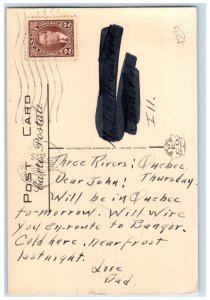 POST CARD
Carte Postale
Ill.
Three Rivers; Quebec.
Dear John; Thursday.
Will be in Quebec
tomorrow. Will wire
you en-route to Bangor.
Cold here. Near frost
last night.
Love
Dad